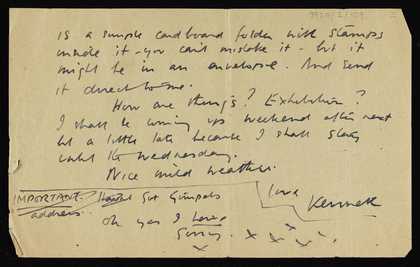 is a simple cardboard folder with stamps
inside it - you can't mistake it - but it
might be in an envelope. And send
it direct to me.
How are things? Exhibition?
I shall be coming up weekend after next
but a little late because I shall stay
until the Wednesday.
Nice mild weather.
love
Kenneth
IMPORTANT
address.
Got Gimpels
oh yes I have
Sorry.
x x x x x